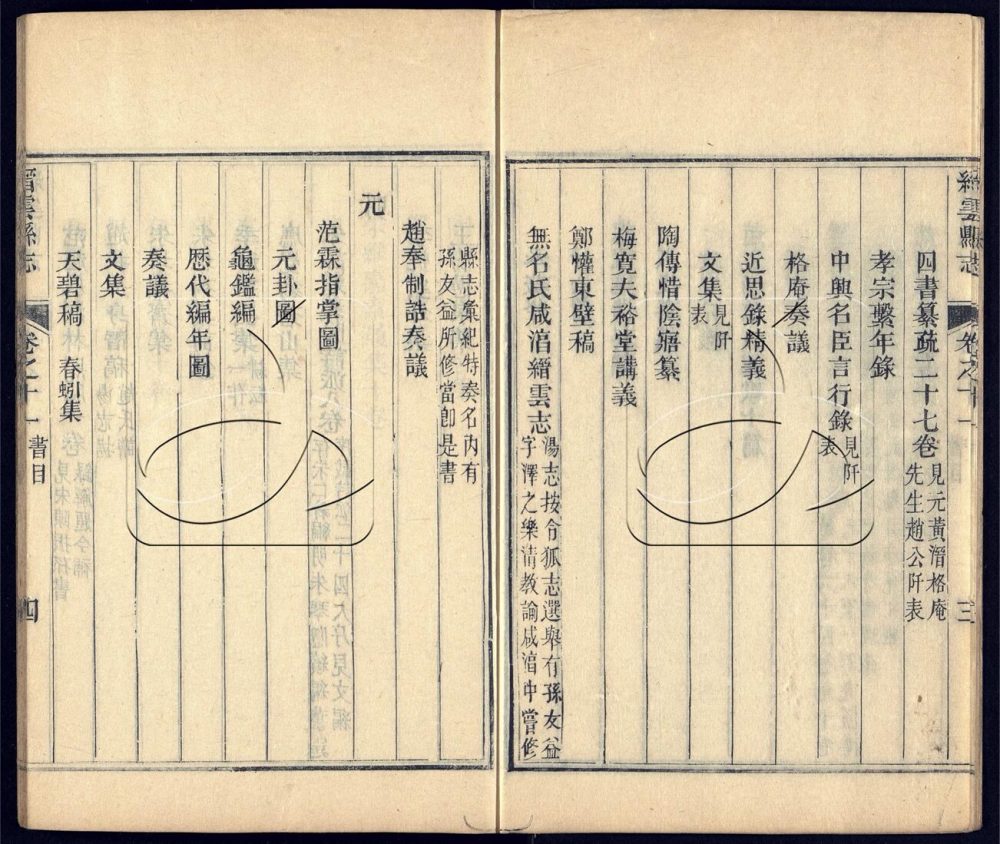 縉雲縣志
卷之十一
三
四書纂疏二十七卷 見元黃溍格庵先生趙公阡表
孝宗繫年錄
中興名臣言行錄 見阡表
格庵奏議
近思錄精義
文集 見阡表
陶傳惜陰寤纂
梅寬夫裕堂講義
鄭懽東壁稿
無名氏咸淳縉雲志 湯志按令狐志選舉有孫友益字澤之樂清教諭咸淳中嘗修
縣志彙紀特奏名內有孫友益所修當卽是書
趙奉制誥奏議
元
范霖指掌圖
元卦圖
龜鑑編
歷代編年圖
奏議
文集
天碧稿
春蚓集
縉雲縣志
卷之十一
書目
四